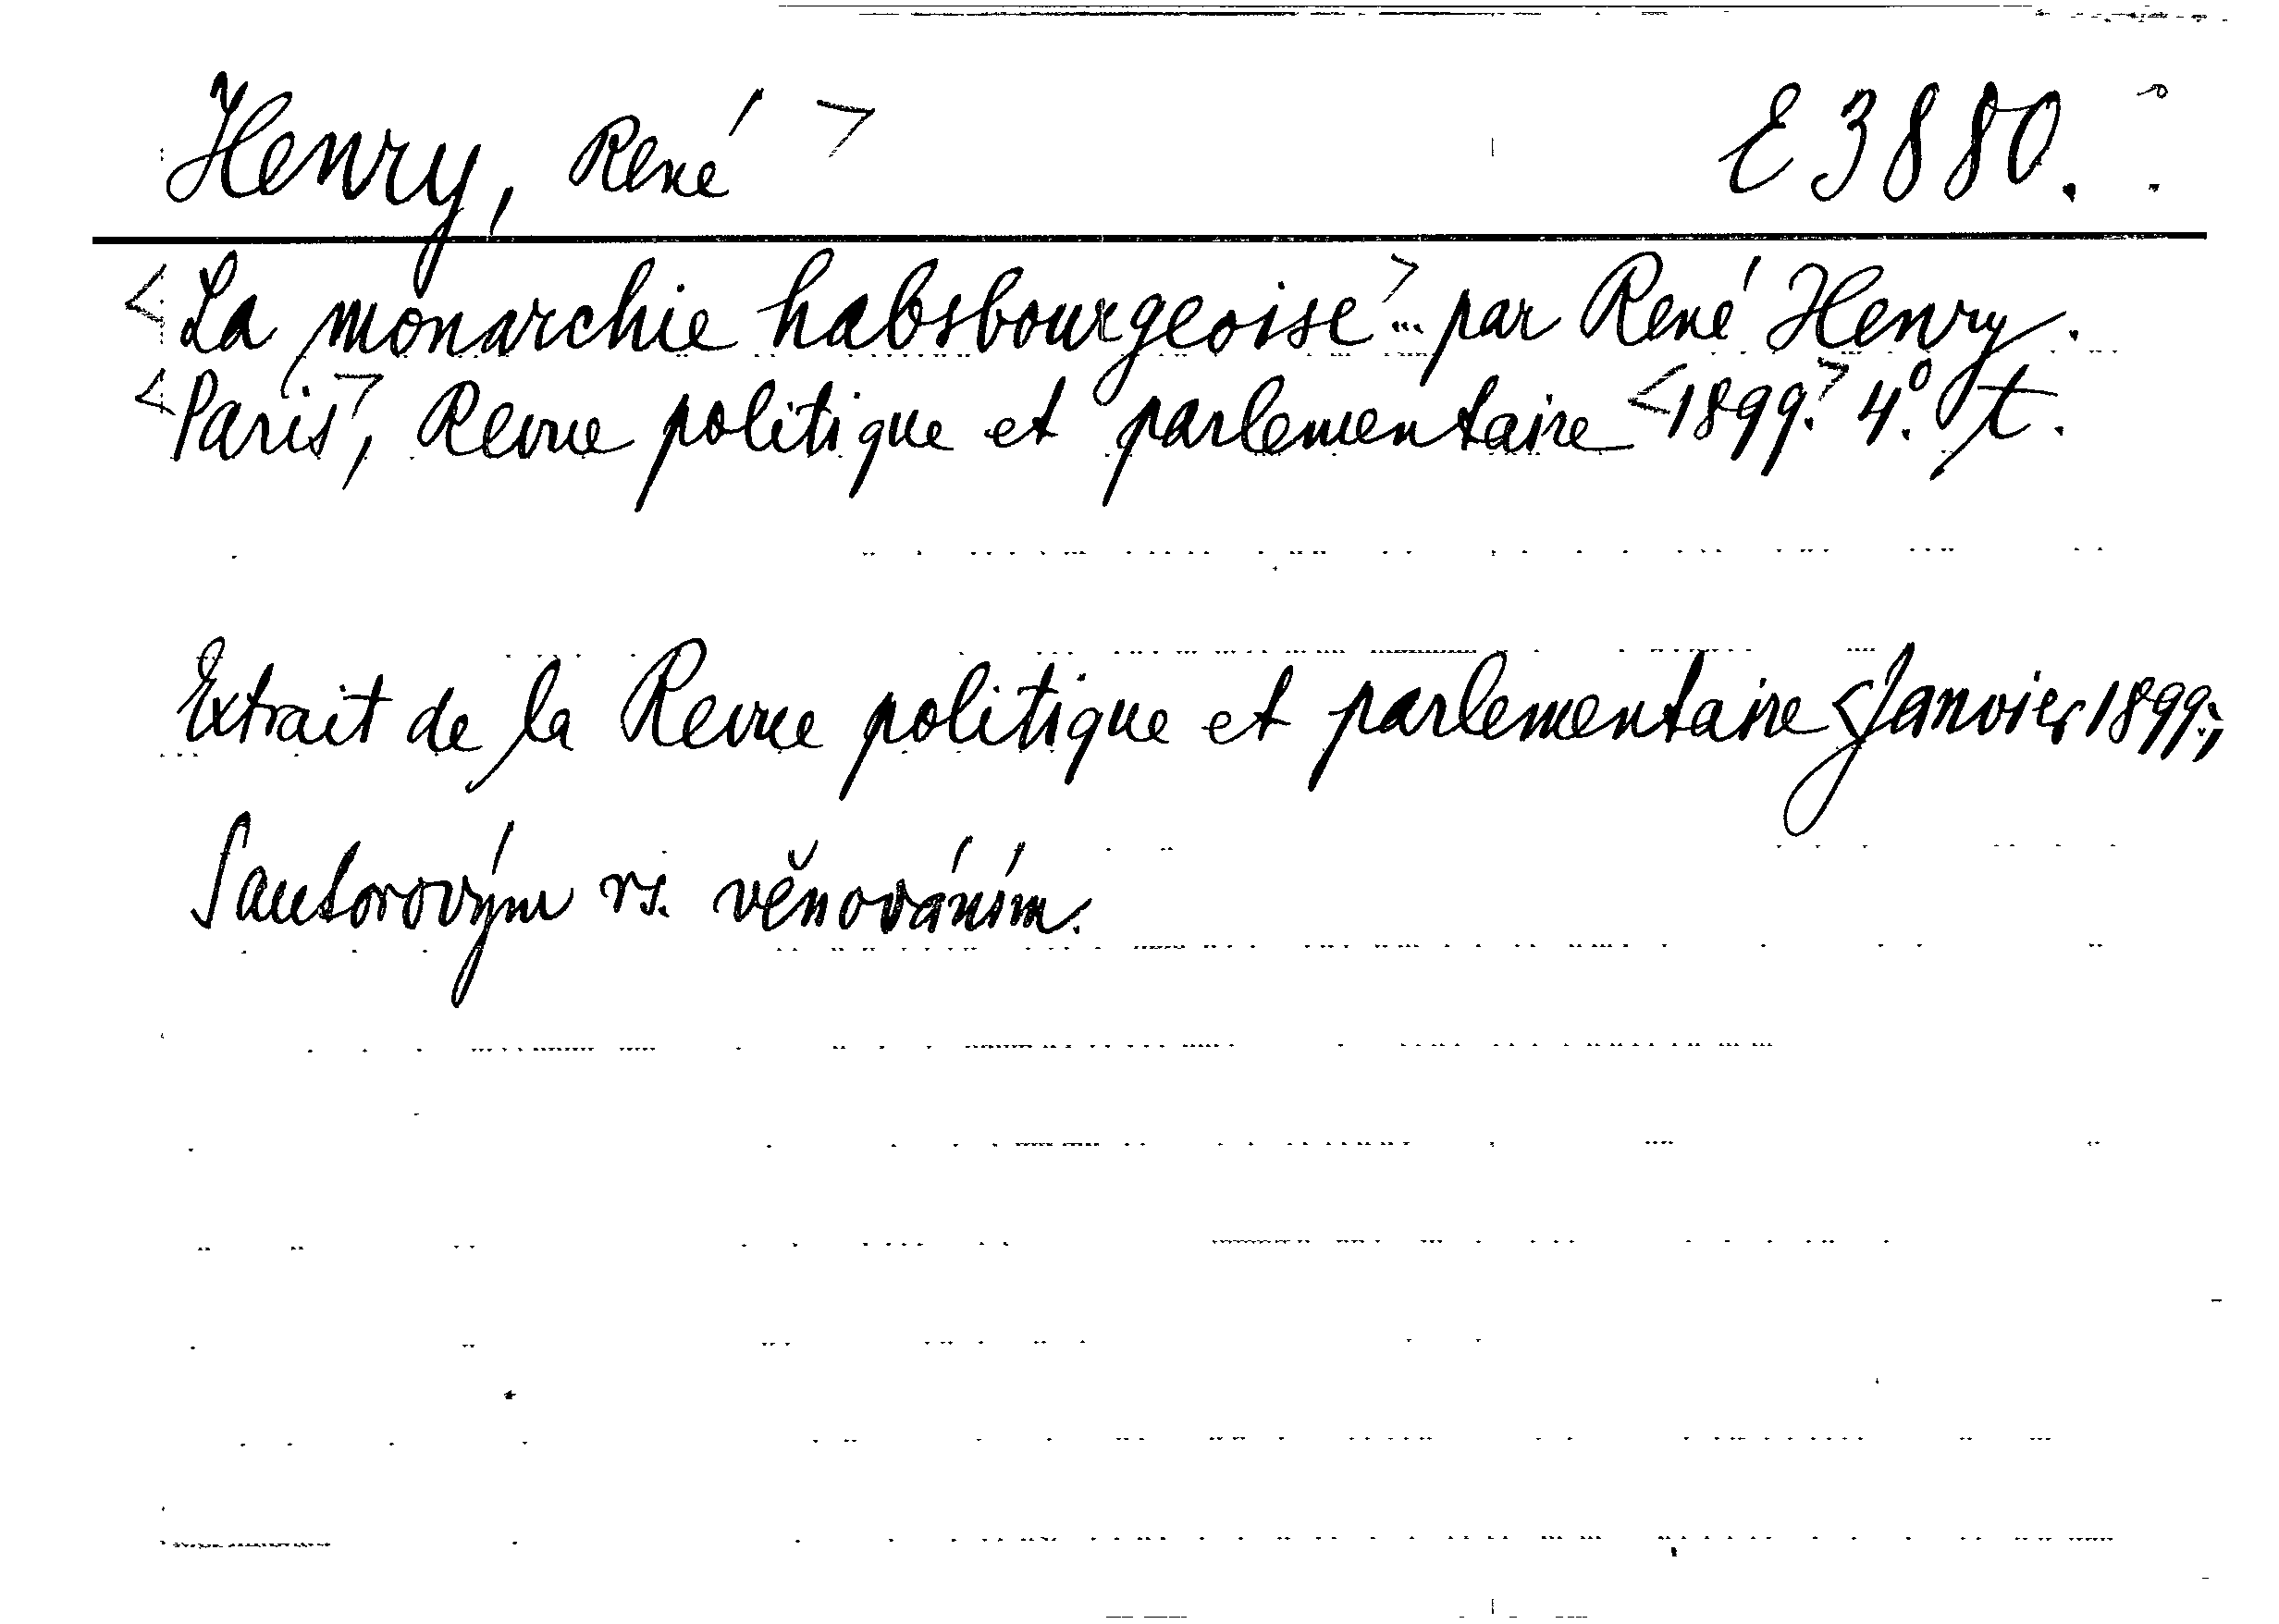 Henry, René > E 3880.
<La monarchie habsbourgeoise> ... par René Henry.
<Paris>, Revue politique et parlementaire <1899.> 4°. t.
Extrait de la Revue politique et parlementaire <Janvier 1899.;
S autorovým rs. věnováním.